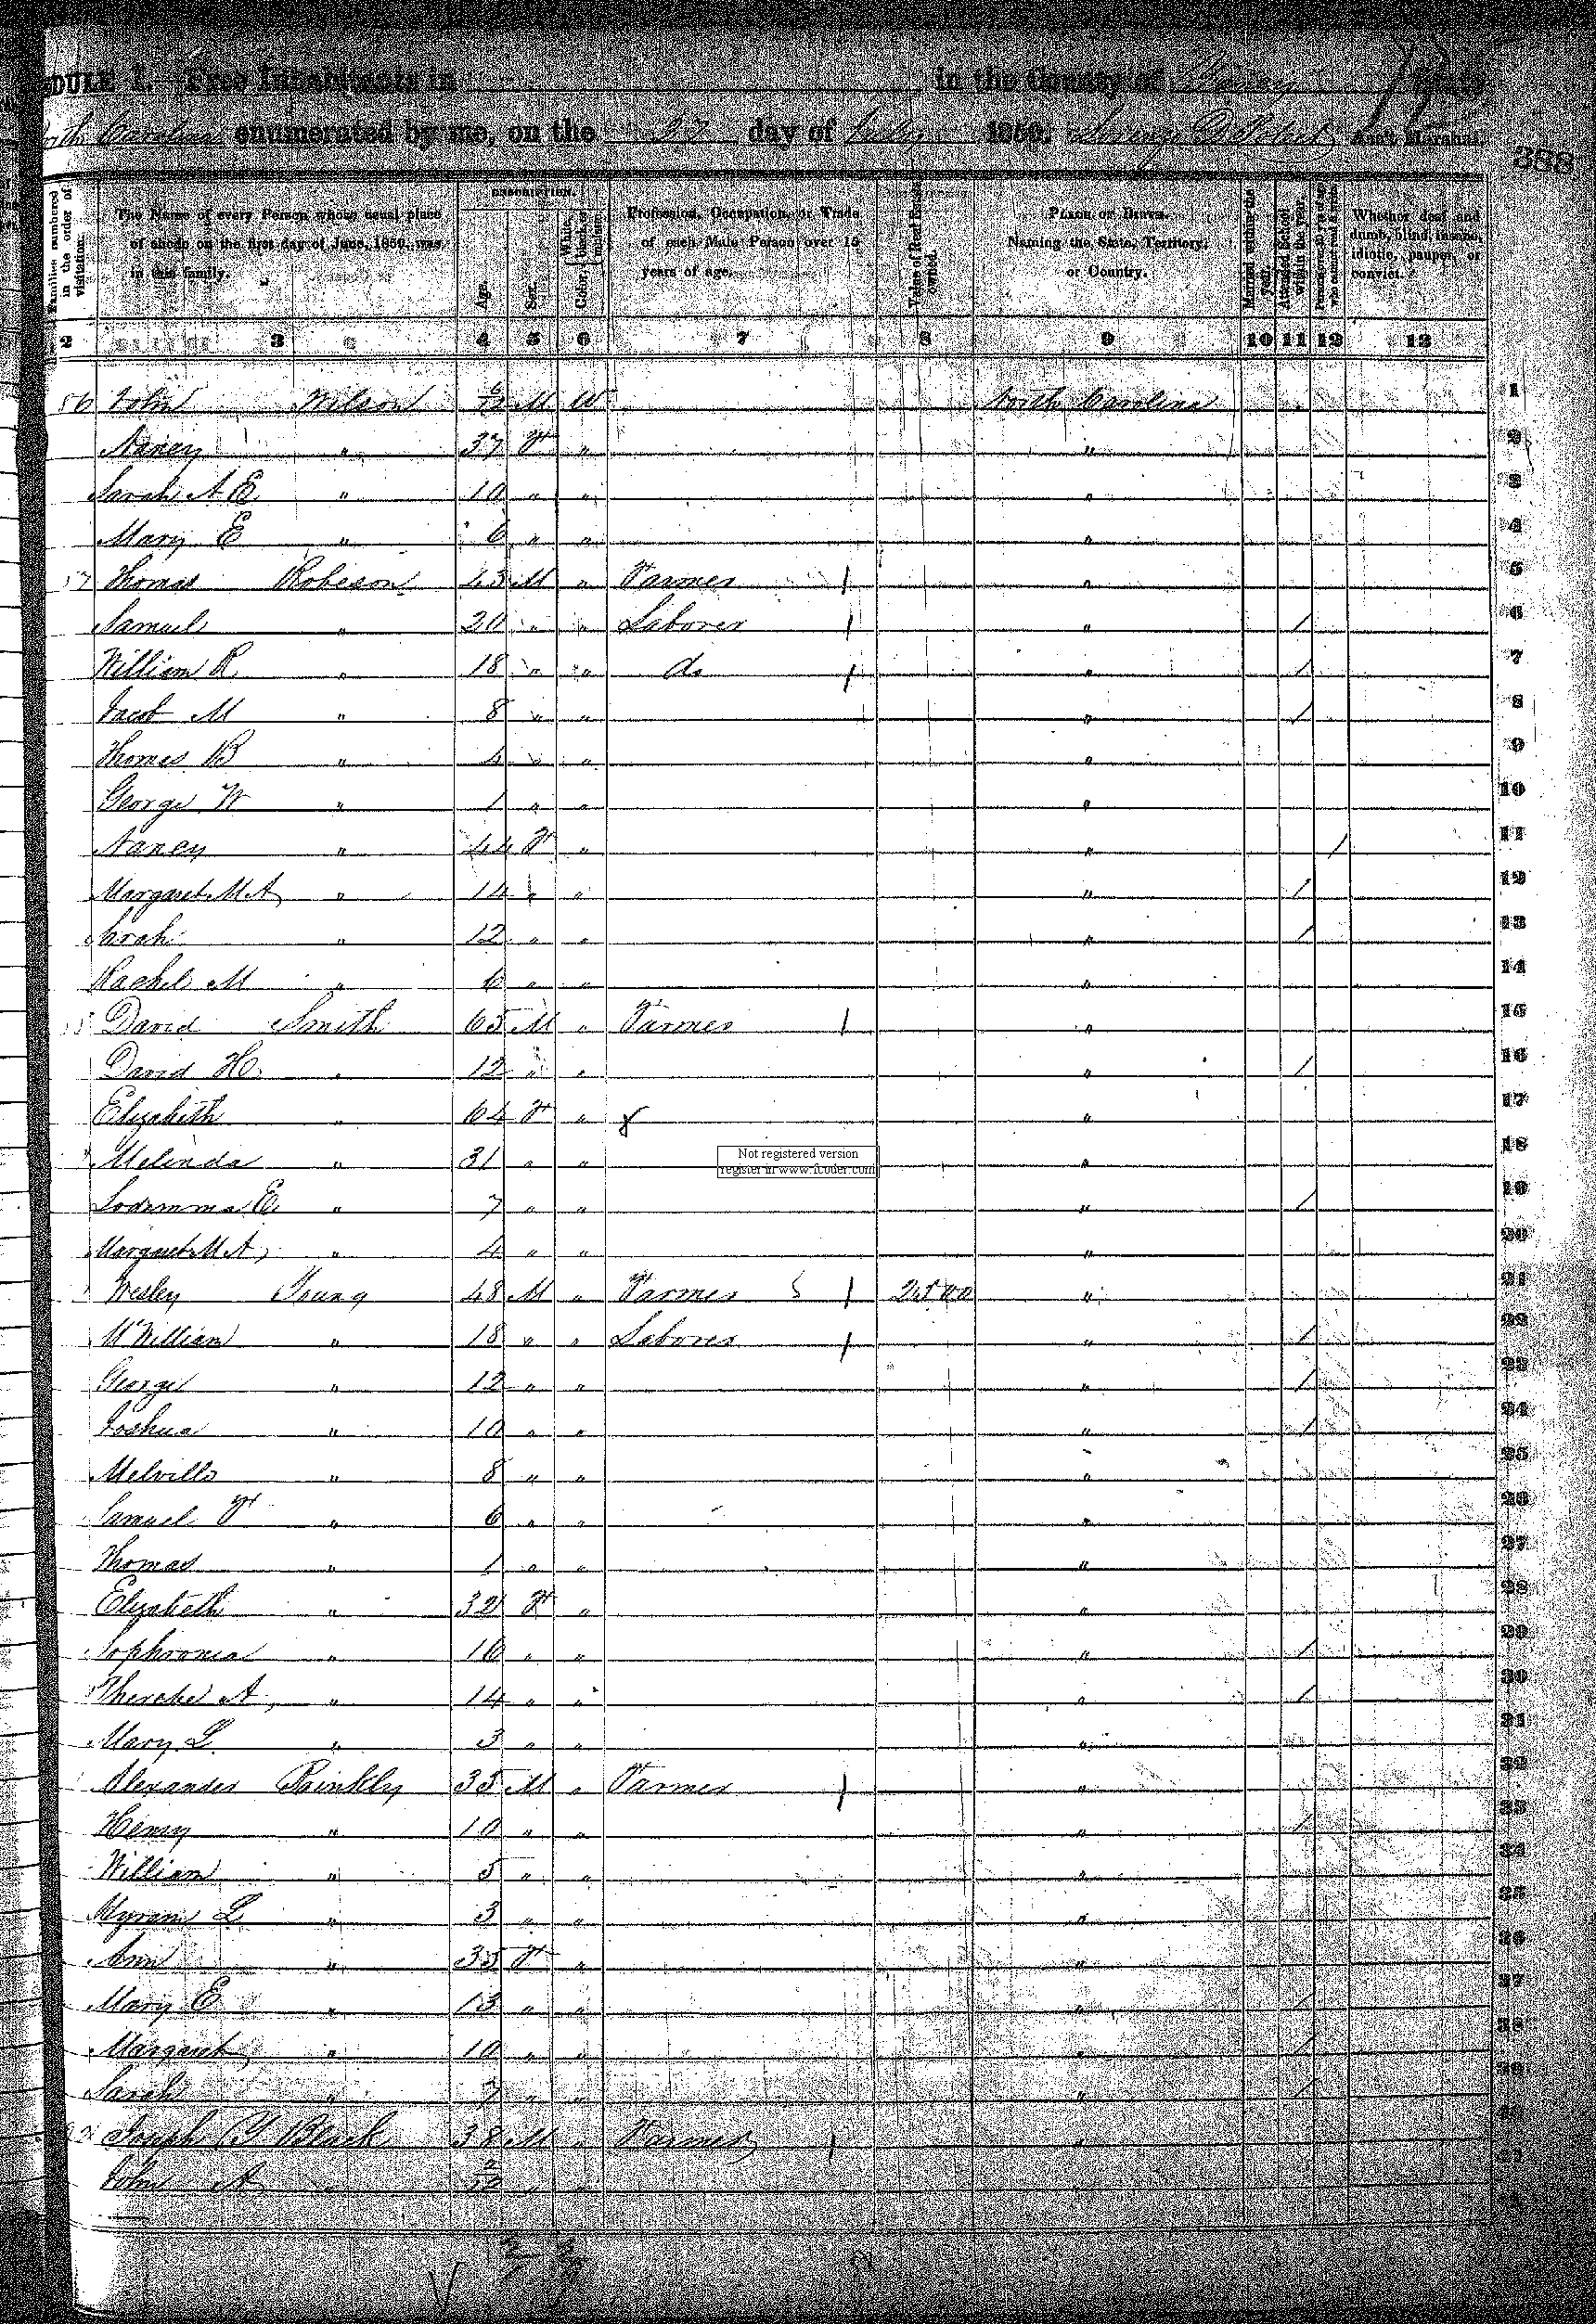 DULE I. Free Inhabitants in in the County of
Carolina enumerated by me, on the 23 day of July 1850. Ass't Marshal.
388
Families numbered in the order of visitation.
The Name of every Person whose usual place of abode on the first day of June, 1850, was in this family.
DESCRIPTION.
Age.
Sex.
Color, { White, black, or mulatto.
Profession, Occupation, or Trade of each Male Person over 15 years of age.
Value of Real Estate owned.
PLACE OF BIRTH. Naming the State, Territory, or Country.
Married within the year.
Attended School within the year.
Persons over 20 y'rs of age who cannot read & write.
Whether deaf and dumb, blind, insane, idiotic, pauper, or convict.
2 3 4 5 6 7 8 9 10 11 12 13
56 John Wilson 6/12 M W North Carolina 1
Nancy " 37 F " " 2
Sarah A E " 10 " " " 3
Mary E " 6 " " " 4
57 Thomas Robeson 43 M " Farmer / " 5
Samuel " 20 " " Laborer / " / 6
William R " 18 " " do / " / 7
Jacob M " 8 " " " / 8
Thomas B " 4 " " " 9
George W " 1 " " " 10
Nancy " 44 F " " / 11
Margaret M A " 14 " " " / 12
Sarah " 12 " " " / 13
Rachel M " 6 " " " 14
David Smith 65 M " Farmer / " 15
David H " 12 " " " / 16
Elizabeth " 64 F " " 17
Melinda " 31 " " " 18
Not registered version
register in www.
E " 7 " " " / 19
Margaret M A " 4 " " " 20
Wesley Young 48 M " Farmer / 2500 " 21
McWilliam " 18 " " Laborer / " / 22
George " 12 " " " / 23
Joshua " 10 " " " / 24
Melville " 8 " " " 25
Samuel F " 6 " " " 26
Thomas " 1 " " " 27
Elizabeth " 32 F " " 28
Sophronia " 16 " " " / 29
A " 14 " " " / 30
Mary L " 3 " " " 31
Alexander 35 M " Farmer / " 32
Henry " 10 " " " / 33
William " 5 " " " 34
L " 3 " " " 35
Ann " 35 F " " 36
Mary E " 13 " " " / 37
Margaret " 10 " " " / 38
Sarah " 7 " " " / 39
Joseph Y Black 38 M " Farmer / "
John A " 2/12 " "